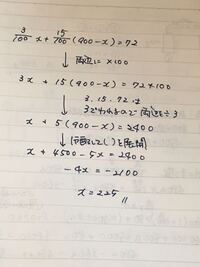 3/100 x + 15/100 (900-x) = 72
↓ 両辺に ×100
3x + 15(900-x) = 72×100
↓ 3.15.72は
3でわれるので 両辺÷3
x + 5(900-x) = 2400
↓ ( )を展開
x + 4500-5x = 2400
-4x = -2100
x = 525 〃